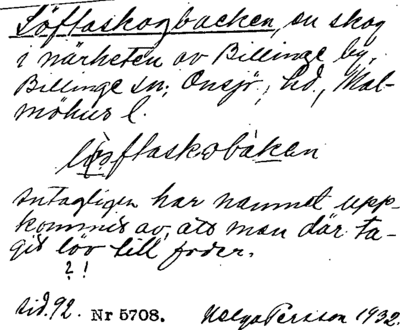 Löftaskogbacken, en skog
i närheten av Billinge by,
Billinge sn, Onsjö, hd., Mal-
möhus l.
löftaskobakan
Antagligen har namnet upp-
kommit av, att man där ta-
git löv till foder.
? !
sid. 92. Nr 5708. Helga Persson 1932.